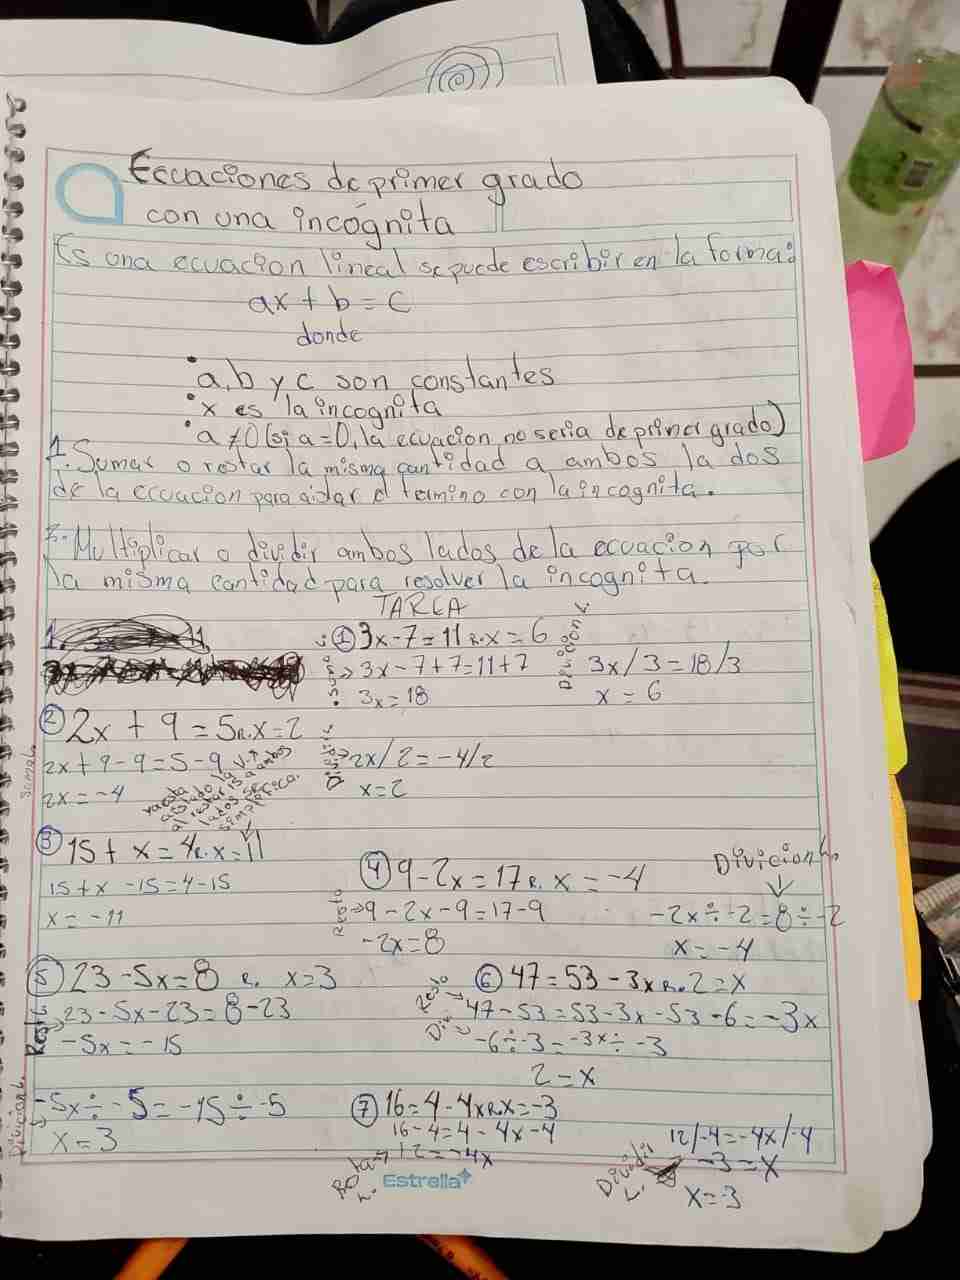 Ecuaciones de primer grado
con una incógnita
Es una ecuacion lineal se puede escribir en la forma:
ax + b = c
donde
• a, b y c son constantes
• x es la incognita
• a ≠ 0 (si a = 0, la ecuacion no seria de primer grado)
1. Sumar o restar la misma cantidad a ambos lados
de la ecuacion para aislar el termino con la incognita.
Multiplicar o dividir ambos lados de la ecuacion por
la misma cantidad para resolver la incognita.
TAREA
① 3x - 7 = 11 R. x = 6
3x - 7 + 7 = 11 + 7
3x = 18
3x / 3 = 18 / 3
x = 6
② 2x + 9 = 5 R. x = 2
2x + 9 - 9 = 5 - 9
2x = -4
al restar
lados se
simplifica.
2x / 2 = -4/2
x = 2
③ 15 + x = 4 R. x = 11
15 + x - 15 = 4 - 15
x = -11
④ 9 - 2x = 17 R. x = -4
Resto → 9 - 2x - 9 = 17 - 9
-2x = 8
Divicion
-2x ÷ -2 = 8 ÷ -2
x = -4
⑤ 23 - 5x = 8 R. x = 3
23 - 5x - 23 = 8 - 23
-5x = -15
-5x ÷ -5 = -15 ÷ -5
x = 3
⑥ 47 = 53 - 3x R. 2 = x
Resto → 47 - 53 = 53 - 3x - 53 - 6 = -3x
-6 ÷ -3 = -3x ÷ -3
2 = x
⑦ 16 = 4 - 4x R. x = -3
16 - 4 = 4 - 4x - 4
12 = -4x
12/-4 = -4x/-4
-3 = x
x = -3
Estrella